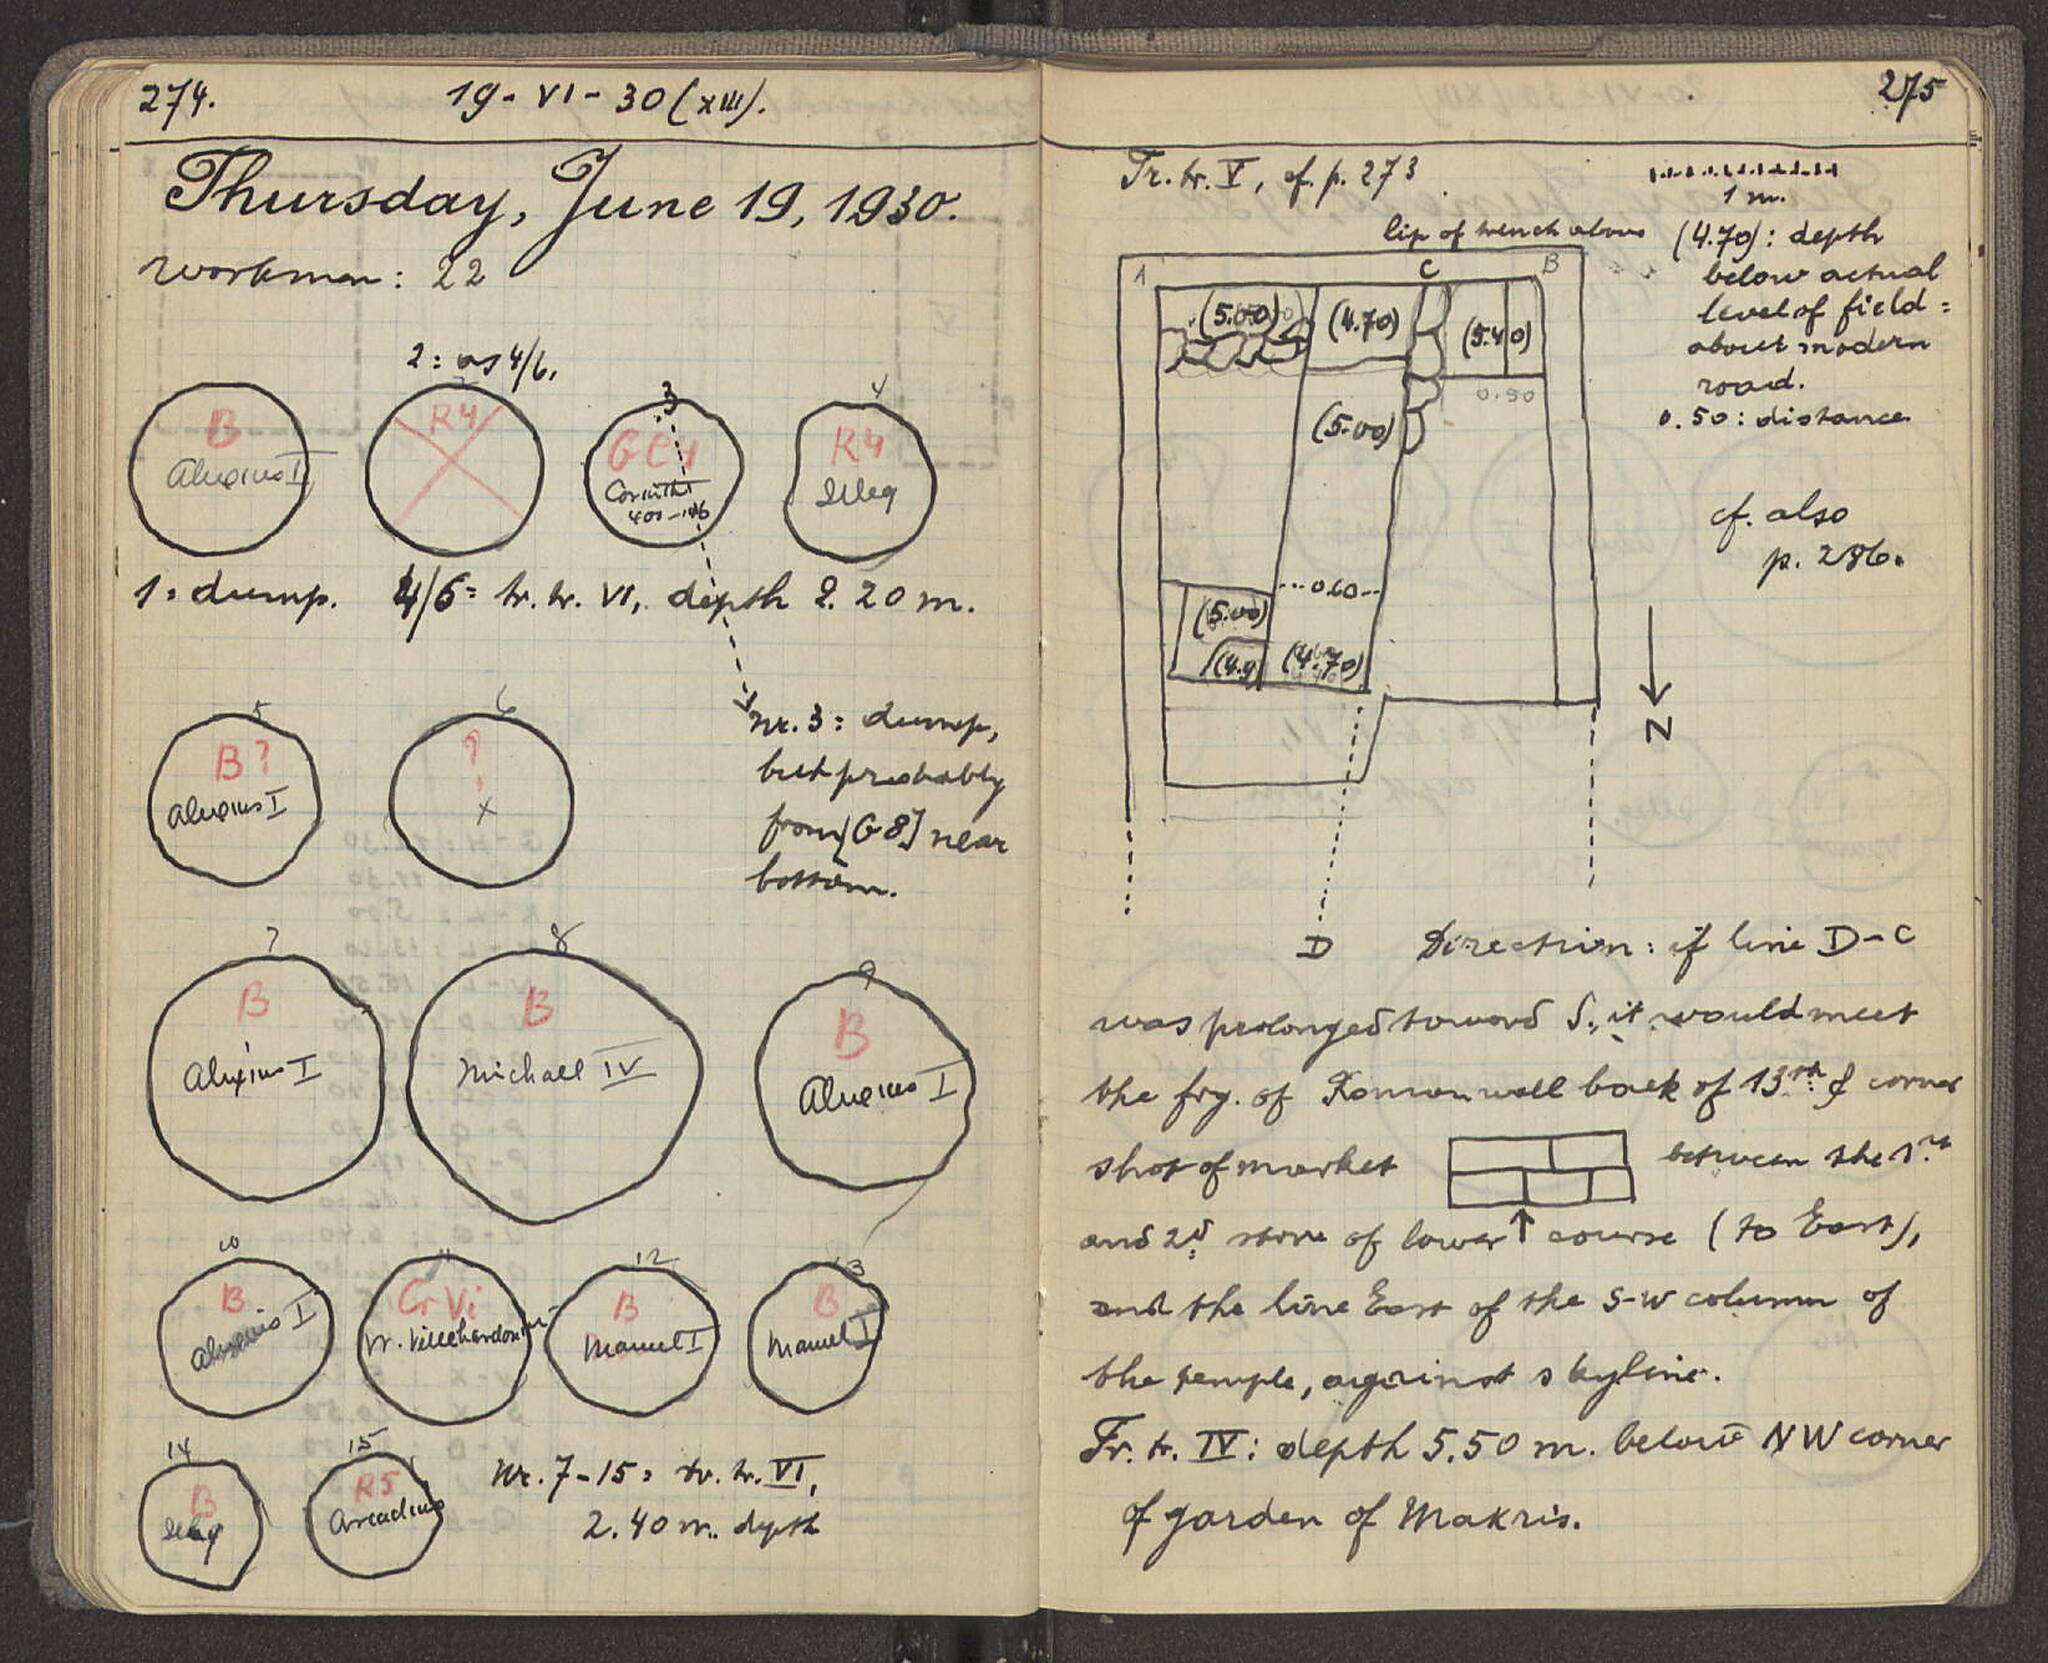 274.
19-VI-30 (XIII).
Thursday, June 19, 1930.
workmen: 22
2: as 4/6,
B
Alexius I
2
R4
3
GC4
Corinth
400-146
4
R4
illeg
1= dump. 4/6= tr. tr. VI, depth 2.20 m.
5
B?
Alexius I
6
?
x
Nr. 3= dump,
but probably
from [G 8] near
bottom.
7
B
Alexius I
8
B
Michael IV
9
B
Alexius I
10
B
Alexius I
11
Cr Vi
W. Villehardouin
12
B
Manuel I
13
B
Manuel I
14
B
illeg
15
R5
Arcadius
Nr. 7-15= tr. tr. VI,
2.40 m. depth
275
Tr. tr. V, cf. p. 273
1 m.
lip of trench above
(4.70): depth
below actual
level of field =
about modern
road.
0.50: distance
A
C
B
(5.00)
(4.70)
(5.40)
0.50
(5.00)
cf. also
p. 286.
0.60
(5.00)
(4.9)
(4.70)
N
D
Direction: if line D-C
was prolonged toward S., it would meet
the frg. of Roman wall back of 13th corner
shop of market between the 1st
and 2d stone of lower course (to East),
and the line East of the S-W column of
the temple, against skyline.
Tr. tr. IV: depth 5.50 m. below NW corner
of garden of Makris.